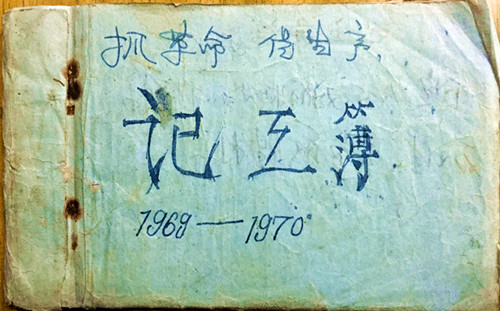 抓革命 促生产.
记工簿
1969—1970